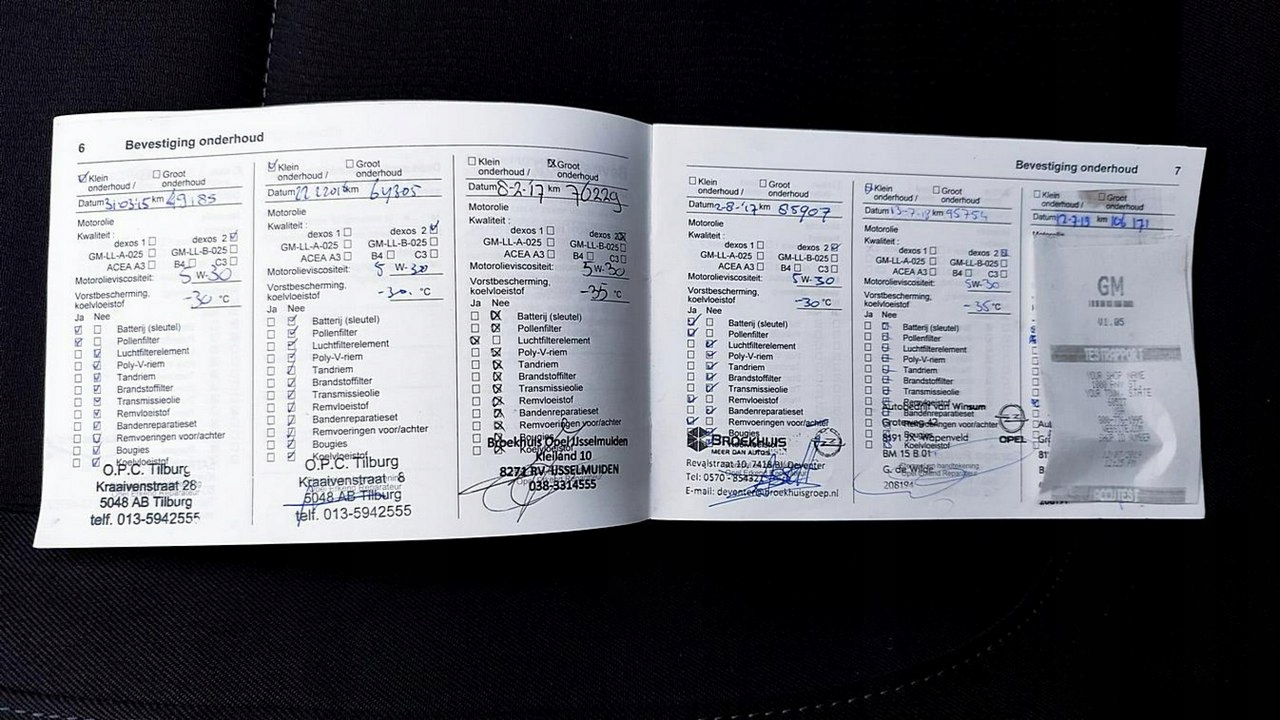 6
Bevestiging onderhoud
Klein onderhoud /
Groot onderhoud
Datum 31-03-15 km 49185
Motorolie
Kwaliteit :
dexos 1
dexos 2
GM-LL-A-025
GM-LL-B-025
ACEA A3
B4
C3
Motorolieviscositeit: 5 W-30
Vorstbescherming,
koelvloeistof -30 °C
Ja Nee
Batterij (sleutel)
Pollenfilter
Luchtfilterelement
Poly-V-riem
Tandriem
Brandstoffilter
Transmissieolie
Remvloeistof
Bandenreparatieset
Remvoeringen voor/achter
Bougies
Koelvloeistof
O.P.C. Tilburg
Kraaivenstraat 28
5048 AB Tilburg
telf. 013-5942555
Klein onderhoud /
Groot onderhoud
Datum km 64305
Motorolie
Kwaliteit :
dexos 1
dexos 2
GM-LL-A-025
GM-LL-B-025
ACEA A3
B4
C3
Motorolieviscositeit: 5 W-30
Vorstbescherming,
koelvloeistof -30. °C
Ja Nee
Batterij (sleutel)
Pollenfilter
Luchtfilterelement
Poly-V-riem
Tandriem
Brandstoffilter
Transmissieolie
Remvloeistof
Bandenreparatieset
Remvoeringen voor/achter
Bougies
Koelvloeistof
O.P.C. Tilburg
Kraaivenstraat 8
Opel Erkend Reparateur
5048 AB Tilburg
telf. 013-5942555
Klein onderhoud /
Groot onderhoud
Datum 8-2-17 km 76229
Motorolie
Kwaliteit :
dexos 1
dexos 2
GM-LL-A-025
GM-LL-B-025
ACEA A3
B4
C3
Motorolieviscositeit: 5W-30
Vorstbescherming,
koelvloeistof -35 °C
Ja Nee
Batterij (sleutel)
Pollenfilter
Luchtfilterelement
Poly-V-riem
Tandriem
Brandstoffilter
Transmissieolie
Remvloeistof
Bandenreparatieset
Remvoeringen voor/achter
Bougies
Koelvloeistof
Broekhuis Opel IJsselmuiden
Kleiland 10
8271 RV IJSSELMUIDEN
038-3314555
Bevestiging onderhoud
7
Klein onderhoud /
Groot onderhoud
Datum 2-8-'17 km 85907
Motorolie
Kwaliteit :
dexos 1
dexos 2
GM-LL-A-025
GM-LL-B-025
ACEA A3
B4
C3
Motorolieviscositeit: 5W-30
Vorstbescherming,
koelvloeistof -30 °C
Ja Nee
Batterij (sleutel)
Pollenfilter
Luchtfilterelement
Poly-V-riem
Tandriem
Brandstoffilter
Transmissieolie
Remvloeistof
Bandenreparatieset
Remvoeringen voor/achter
Bougies
BROEKHUIS
MEER DAN AUTO'S
Revalstraat 10, 7418 BJ Deventer
Tel: 0570 -
E-mail: deventer@broekhuisgroep.nl
Klein onderhoud /
Groot onderhoud
Datum 13-7-18 km 95754
Motorolie
Kwaliteit :
dexos 1
dexos 2
GM-LL-A-025
GM-LL-B-025
ACEA A3
B4
C3
Motorolieviscositeit: 5W-30
Vorstbescherming,
koelvloeistof -35 °C
Ja Nee
Batterij (sleutel)
Pollenfilter
Luchtfilterelement
Poly-V-riem
Tandriem
Brandstoffilter
Transmissieolie
Remvloeistof
Bandenreparatieset
Remvoeringen voor/achter
Bougies
Koelvloeistof
Autobedrijf van Winsum
Groteweg 62
8191 JX Wapenveld
BM 15 B 01
G. de Wilde
208194
OPEL
Klein onderhoud /
Groot onderhoud
Datum 12-7-19 km 106 171
GM
V1.05
TESTRAPPORT
YOUR SHOP NAME